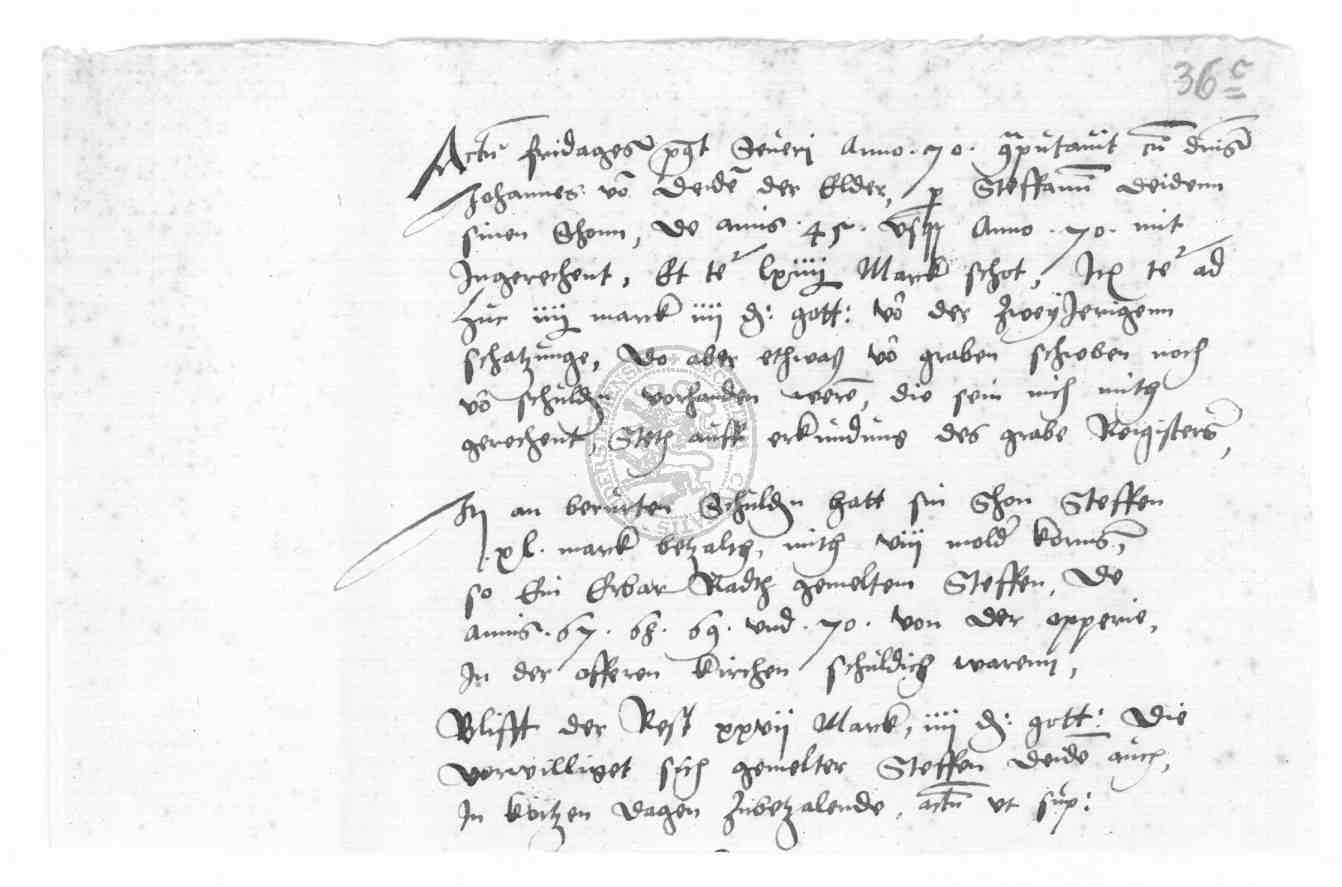 36 c
Actu fridages post Severi Anno . 70 . computavit cu dnis
Johannes vo Deide der Elder, p Steffanu Deidenn
sinen Shonn, de annis . 45 . usque Anno . 70 . mit
Ingerechent, Et te lxiiij Marck schot, Ite te ad
huc iiij marck iiij d: gott: vo der zweyJerigenn
schatzunge, Do aber ethwaß vo graben schoben noch
vo schulden vorhanden were, die sein nich mith
gerechent, Steth auff erkundung des grabe Reigisters,
It an berurten Schulden hatt sin Shon Steffen
.xl. marck betzalth, mith viij mold korns,
so Ein Erbar Radth gemeltem Steffen, De
annis . 67 . 68 . 69 . und . 70 . von der opperie,
In der offeren kirchen schuldich warenn,
Blifft der Rest xxvij Marck, iiij d: gott: Die
vorwilliget sich gemelter Steffen Deide auch,
In kortzen dagen zubetzalende, actu ut sup: